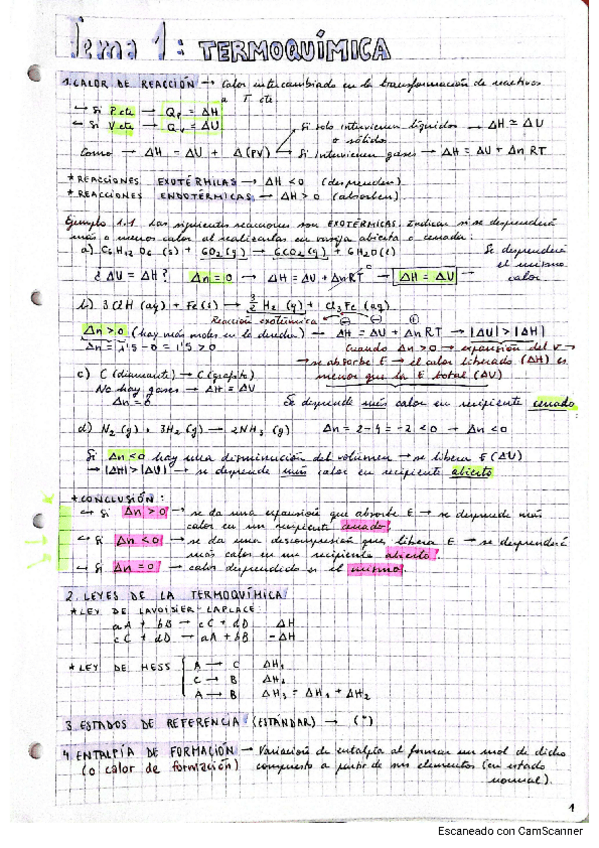 Tema 1: TERMOQUÍMICA
1. CALOR DE REACCIÓN → Calor intercambiado en la transformación de reactivos
a T cte
↪ Si P.cte → Qp = ΔH
↪ Si V.cte → Qv = ΔU
Como → ΔH = ΔU + Δ(PV)
Si solo intervienen líquidos o sólidos → ΔH ≃ ΔU
Si intervienen gases → ΔH = ΔU + Δn RT
* REACCIONES EXOTÉRMICAS → ΔH < 0 (desprenden)
* REACCIONES ENDOTÉRMICAS → ΔH > 0 (absorben)
Ejemplo 1.1 Las siguientes reacciones son EXOTÉRMICAS. Indicar si se desprenderá
más o menos calor al realizarlas en vasija abierta o cerrada.
a) C6H12O6 (s) + 6O2 (g) → 6CO2 (g) + 6H2O (l)
¿ ΔU = ΔH? Δn = 0 → ΔH = ΔU + ΔnRT → ΔH = ΔU
Se desprenderá
el mismo
calor
b) 3ClH (aq) + Fe (s) → 3/2 H2 (g) + Cl3Fe (aq)
Reacción exotérmica
Δn > 0 (hay más moles en la derecha) → ΔH = ΔU + Δn RT → |ΔU| > |ΔH|
Δn = 1'5 - 0 = 1'5 > 0
Cuando Δn > 0 → expansión del V →
→ se absorbe E → el calor liberado (ΔH) es
menor que la E total (ΔV)
c) C (diamante) → C (grafito)
No hay gases → ΔH = ΔU
Δn = 0
Se desprende más calor en recipiente cerrado.
d) N2 (g) + 3H2 (g) → 2NH3 (g) Δn = 2 - 4 = -2 < 0 → Δn < 0
Si Δn < 0 hay una disminución del volumen → se libera E (ΔU)
→ |ΔH| > |ΔU| → se desprende más calor en recipiente abierto
* CONCLUSIÓN:
↪ Si Δn > 0 → se da una expansión que absorbe E → se desprende más
calor en un recipiente cerrado.
↪ Si Δn < 0 → se da una descompresión que libera E → se desprenderá
más calor en un recipiente abierto.
↪ Si Δn = 0 → calor desprendido es el mismo.
2. LEYES DE LA TERMOQUÍMICA
* LEY DE LAVOISIER-LAPLACE:
aA + bB → cC + dD ΔH
cC + dD → aA + bB -ΔH
* LEY DE HESS { A → C ΔH1
C → B ΔH2
A → B ΔH3 = ΔH1 + ΔH2
3. ESTADOS DE REFERENCIA (ESTÁNDAR) → (°)
4. ENTALPÍA DE FORMACIÓN → Variación de entalpía al formar un mol de dicho
(o calor de formación) compuesto a partir de sus elementos (en estado
normal).
1
Escaneado con CamScanner